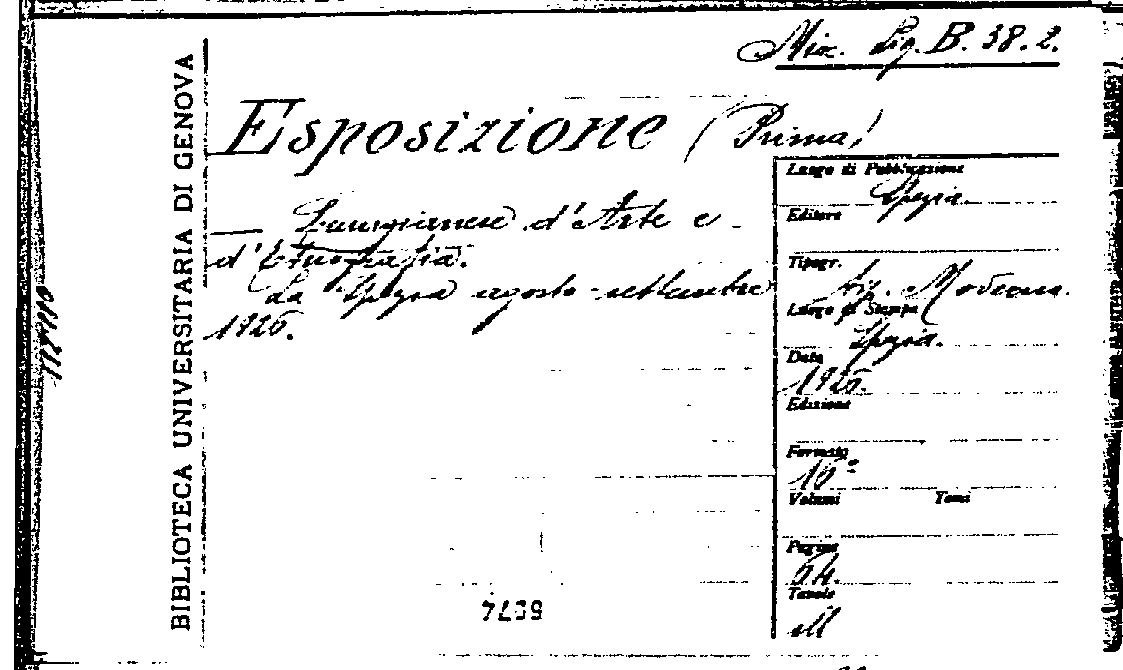 Misc. Lig. B. 38. 2.
BIBLIOTECA UNIVERSITARIA DI GENOVA
Esposizione (Prima)
Lunigianese d'Arte e
d'Etnografia.
La Spezia agosto-settembre
1926.
Luogo di Pubblicazione
Spezia.
Editore
Tipogr.
Tip. Moderna.
Luogo di Stampa
Spezia.
Data
1926.
Edizione
Formato
16º
Volumi Tomi
Pagine
64.
Tavole
ill